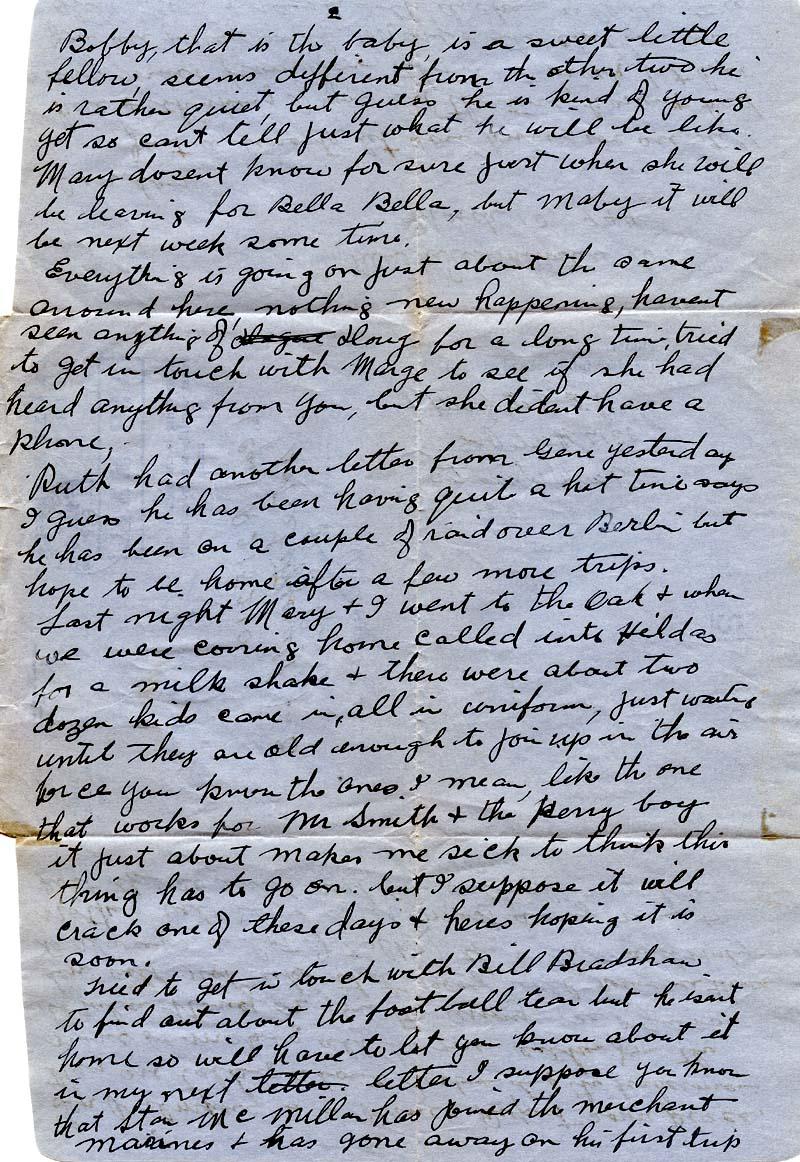 2
Bobby, that is the baby, is a sweet little
fellow, seems different from the other two he
is rather quiet, but guess he is kind of young
yet so can't tell just what he will be like.
Mary dosent know for sure just when she will
be leaving for Bella Bella, but maby it will
be next week some time.
Everything is going on just about the same
around here, nothing new happening, havent
seen anything of Doug for a long time, tried
to get in touch with Marge to see if she had
heard anything from you, but she dident have a
phone,
Ruth had another letter from Gene yesterday
I guess he has been having quite a hot time says
he has been on a couple of raid over Berlin but
hope to be home after a few more trips.
Last night Mary & I went to the Oak & when
we were coming home called into Hildas
for a milk shake & there were about two
dozen kids came in, all in uniform, just waiting
until they are old enough to join up in the air
force you know the ones I mean, like the one
that works for Mr Smith & the Perry boy
it just about makes me sick to think this
thing has to go on. but I suppose it will
crack one of these days & heres hoping it is
soon.
Tried to get in touch with Bill Bradshaw
to find out about the foot ball team but he isnt
home so will have to let you know about it
in my next letter. letter I suppose you know
that Stan McMillan has joined the merchant
marines & has gone away on his first trip